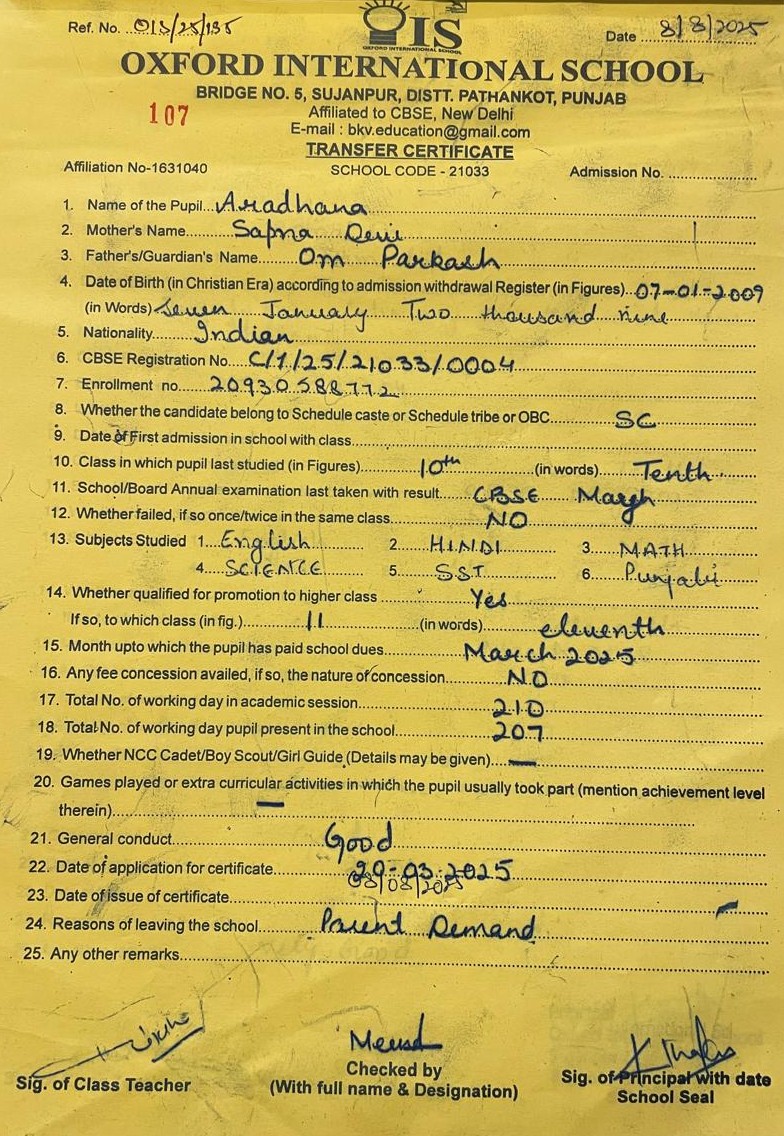 Ref. No. 013/25/135
OIS
OXFORD INTERNATIONAL SCHOOL
Date 8/8/2025
OXFORD INTERNATIONAL SCHOOL
BRIDGE NO. 5, SUJANPUR, DISTT. PATHANKOT, PUNJAB
107
Affiliated to CBSE, New Delhi
E-mail : bkv.education@gmail.com
TRANSFER CERTIFICATE
Affiliation No-1631040 SCHOOL CODE - 21033 Admission No. ....................
1. Name of the Pupil...Aradhana
2. Mother's Name Sapna Devi
3. Father's/Guardian's Name Om Parkash
4. Date of Birth (in Christian Era) according to admission withdrawal Register (in Figures)..07-01-2009
(in Words) Seven January Two thousand nine
5. Nationality Indian
6. CBSE Registration No. C/1/25/21033/0004
7. Enrollment no. 20930588772
8. Whether the candidate belong to Schedule caste or Schedule tribe or OBC SC
9. Date of First admission in school with class
10. Class in which pupil last studied (in Figures) 10th (in words) Tenth
11. School/Board Annual examination last taken with result CBSE March
12. Whether failed, if so once/twice in the same class NO
13. Subjects Studied 1. English 2. HINDI 3. MATH
4. SCIENCE 5. SST 6. Punjabi
14. Whether qualified for promotion to higher class Yes
If so, to which class (in fig.) 11 (in words) eleventh
15. Month upto which the pupil has paid school dues March 2025
16. Any fee concession availed, if so, the nature of concession NO
17. Total No. of working day in academic session 210
18. Total No. of working day pupil present in the school 207
19. Whether NCC Cadet/Boy Scout/Girl Guide (Details may be given) —
20. Games played or extra curricular activities in which the pupil usually took part (mention achievement level
therein) —
21. General conduct Good
22. Date of application for certificate 20-03-2025
08/08/2025
23. Date of issue of certificate
24. Reasons of leaving the school Parent Demand
25. Any other remarks
Sig. of Class Teacher
Checked by
(With full name & Designation)
Sig. of Principal with date
School Seal